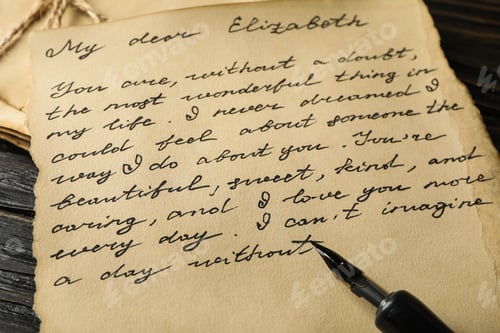 My dear Elizabeth
You are, without a doubt,
the most wonderful thing in
my life. I never dreamed I
could feel about someone the
way I do about you. You're
beautiful, sweet, kind, and
caring, and I love you more
every day. I can't imagine
a day without
envato
envato
envato
envato
envato